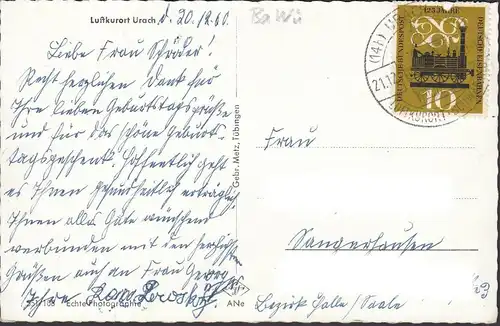 Luftkurort Urach, d. 20.12.60.
Ba Wü
Liebe Frau Schröder!
Recht herzlichen Dank für
Ihre lieben Geburtstagsgrüße
und für das schöne Geburts-
tagsgeschenk. Hoffentlich geht
es Ihnen gesundheitlich erträglich
Ihnen alles Gute wünschend
verbunden mit den herzlichsten
Grüßen auch an Frau
Ihre
551/108 Echte Photographie ANe
Gebr. Metz, Tübingen
DEUTSCHE BUNDESPOST
10
(14b)
21.12
LUFTKURORT
Frau
Sangerhausen
Bezirk Halle/Saale